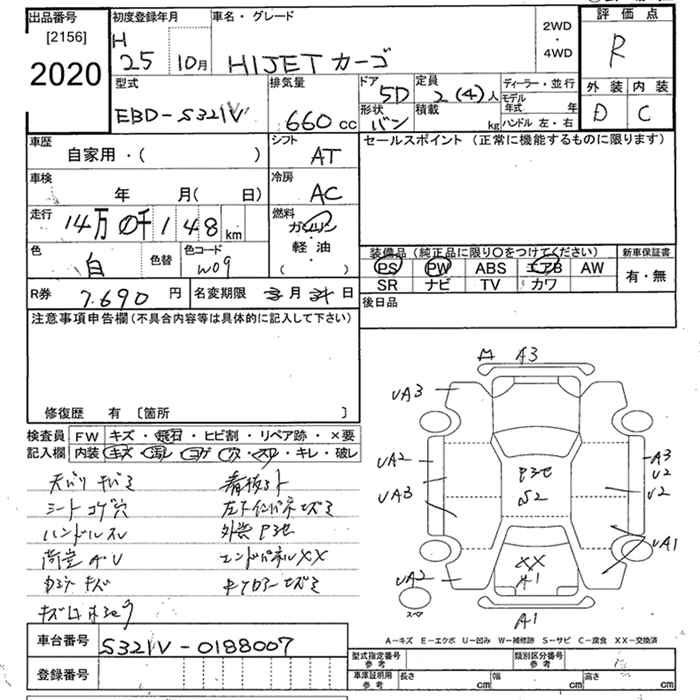 出品番号
[2156]
2020
初度登録年月
H
25 10月
車名・グレード
HIJET カーゴ
2WD
・
4WD
評価点
R
外装 内装
D C
型式
EBD-S321V
排気量
660 cc
ドア
5D
定員
2(4)人
ディーラー・並行
形状
バン
積載
kg
モデル
年式 年
ハンドル 左・右
車歴
自家用・( )
シフト
AT
セールスポイント (正常に機能するものに限ります)
車検
年 月( 日)
冷房
AC
走行
14万0千148km
燃料
ガソリン
軽・油
( )
色
白
色替
色コード
W09
装備品(純正品に限り〇をつけてください)
PS PW ABS エアB AW
SR ナビ TV カワ
新車保証書
有・無
R券
7.690円
名変期限
月 日
後日品
注意事項申告欄(不具合内容等は具体的に記入して下さい)
修復歴 有 〔箇所 〕
検査員
記入欄
FW キズ・飛石・ヒビ割・リペア跡・×要
内装 キズ・汚レ・コゲ・穴・スレ・キレ・破レ
シートコゲ穴
ハンドルスレ
A3
UA3
UA2
UA3
UA2
P3セ
S2
A3
U2
U2
UA1
XX
A1
A1
スペア
A-キズ E-エクボ U-凹み W-補修跡 S-サビ C-腐食 XX-交換済
車台番号
S321V-0188007
登録番号
型式指定番号
参考
類別区分番号
参考
車庫証明用
参考
長さ cm 幅 cm 高さ cm